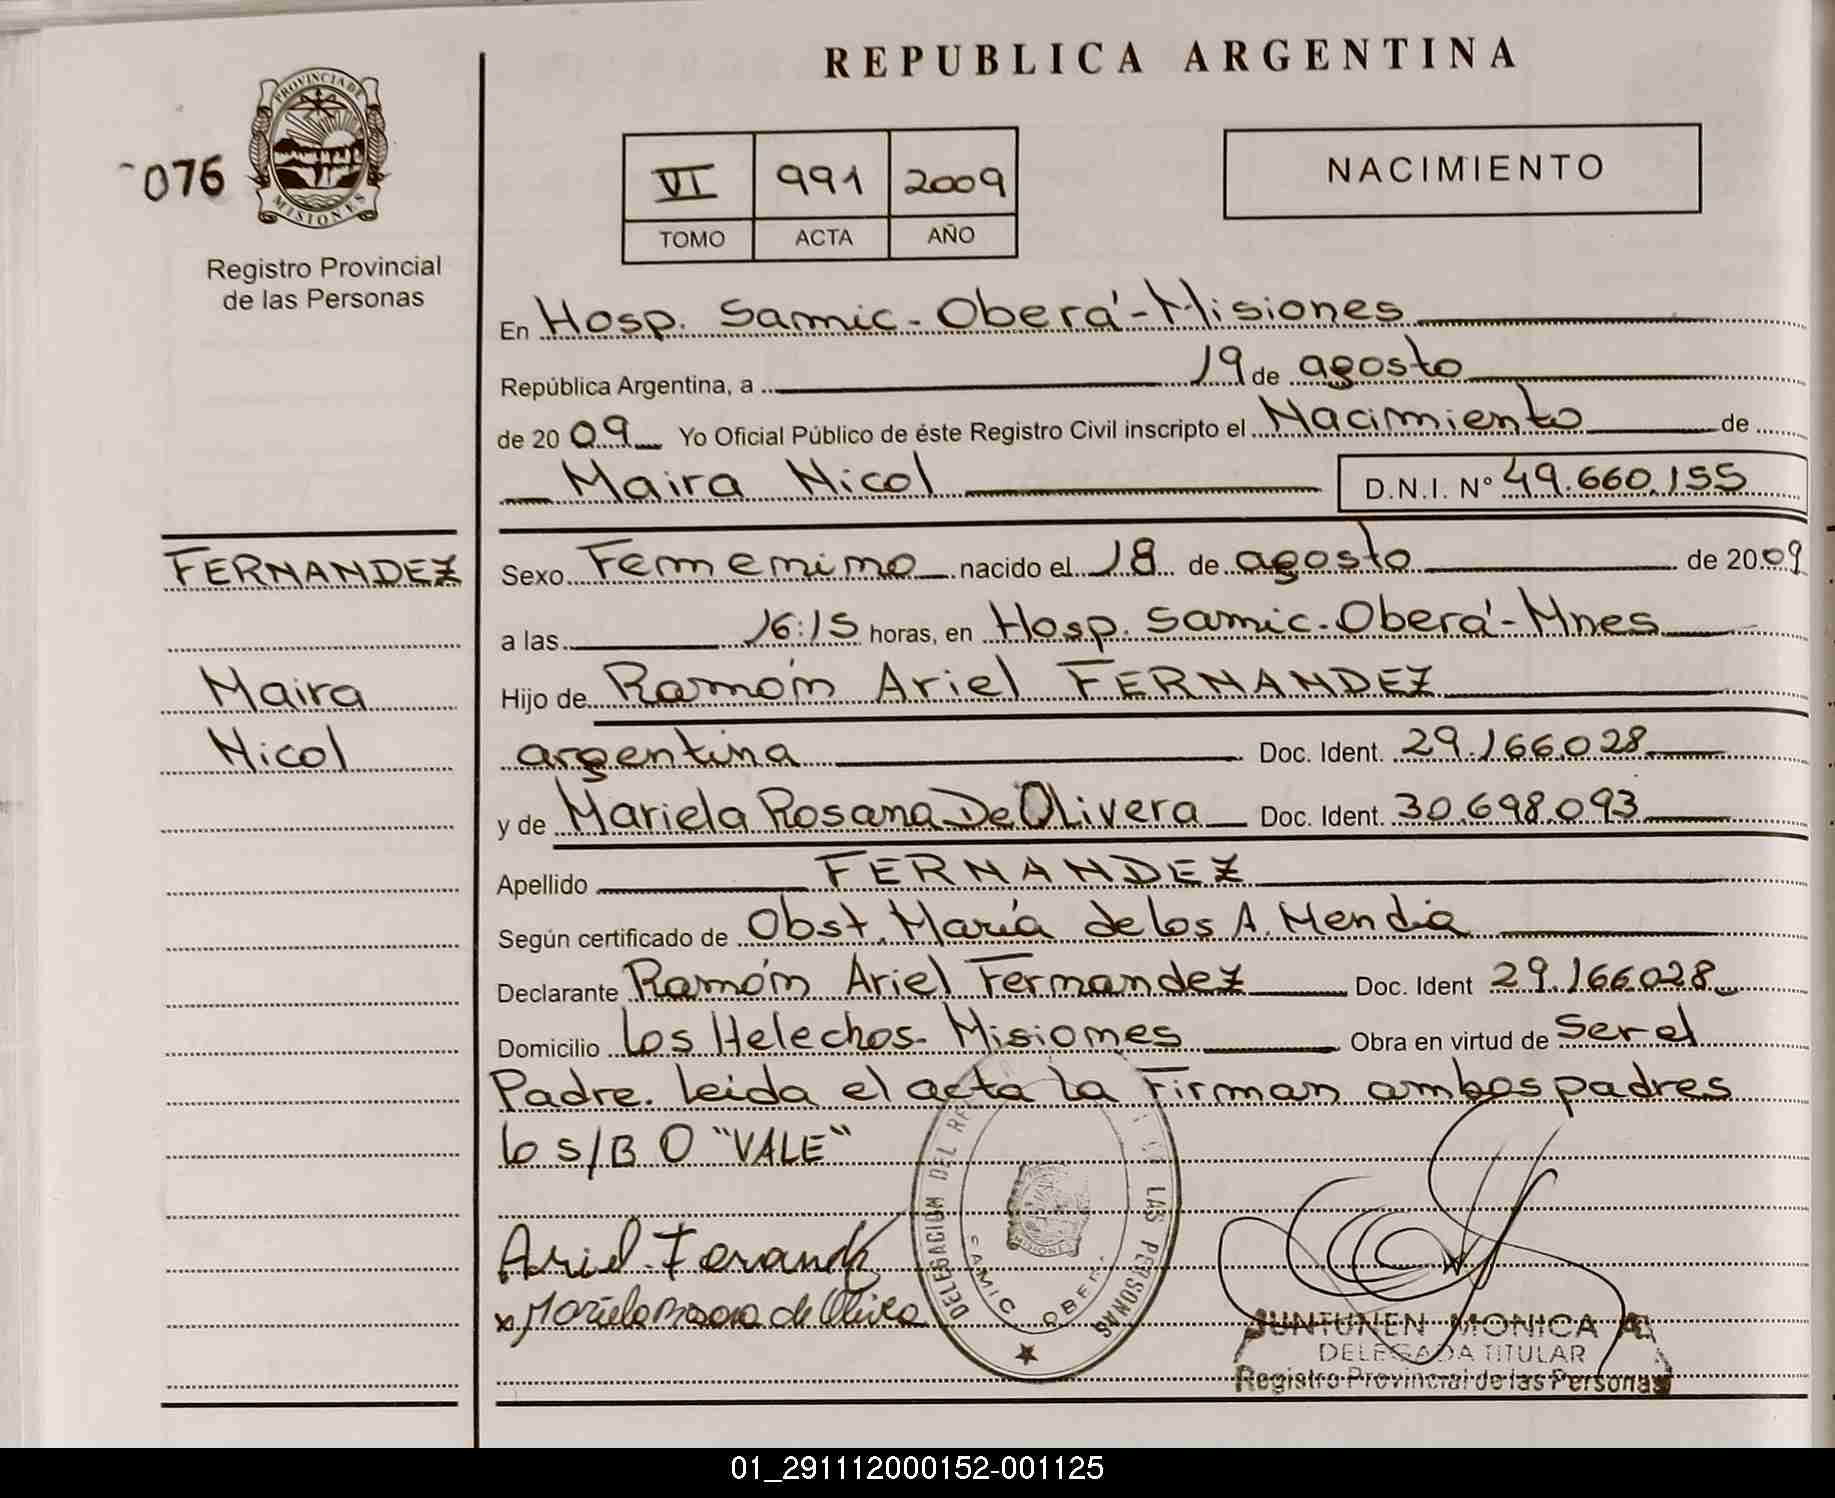 REPUBLICA ARGENTINA
PROVINCIA DE
MISIONES
076
Registro Provincial
de las Personas
VI 991 2009
TOMO ACTA AÑO
NACIMIENTO
En Hosp. Samic - Oberá - Misiones
República Argentina, a 19 de agosto
de 2009 Yo Oficial Público de éste Registro Civil inscripto el Nacimiento de
Maira Nicol D.N.I. Nº 49.660.155
FERNANDEZ
Maira
Nicol
Sexo Femenino nacido el 18 de agosto de 2009
a las 16:15 horas, en Hosp. Samic - Oberá - Mnes
Hijo de Ramón Ariel FERNANDEZ
argentina Doc. Ident. 29.166.028
y de Mariela Rosana De Olivera Doc. Ident. 30.698.093
Apellido FERNANDEZ
Según certificado de Obst. María de los A. Mendia
Declarante Ramón Ariel Fernandez Doc. Ident 29.166.028
Domicilio Los Helechos - Misiones Obra en virtud de Ser el
Padre. Leida el acta la Firman ambos padres
lo s/B O "VALE"
Ariel Fernandez
x Mariela Rosana de Olivera
DELEGACIÓN DEL LAS PERSONAS
SAMIC OBERA
MISIONES
JUNTUNEN MONICA A.
DELEGADA TITULAR
Registro Provincial de las Personas
01_291112000152-001125